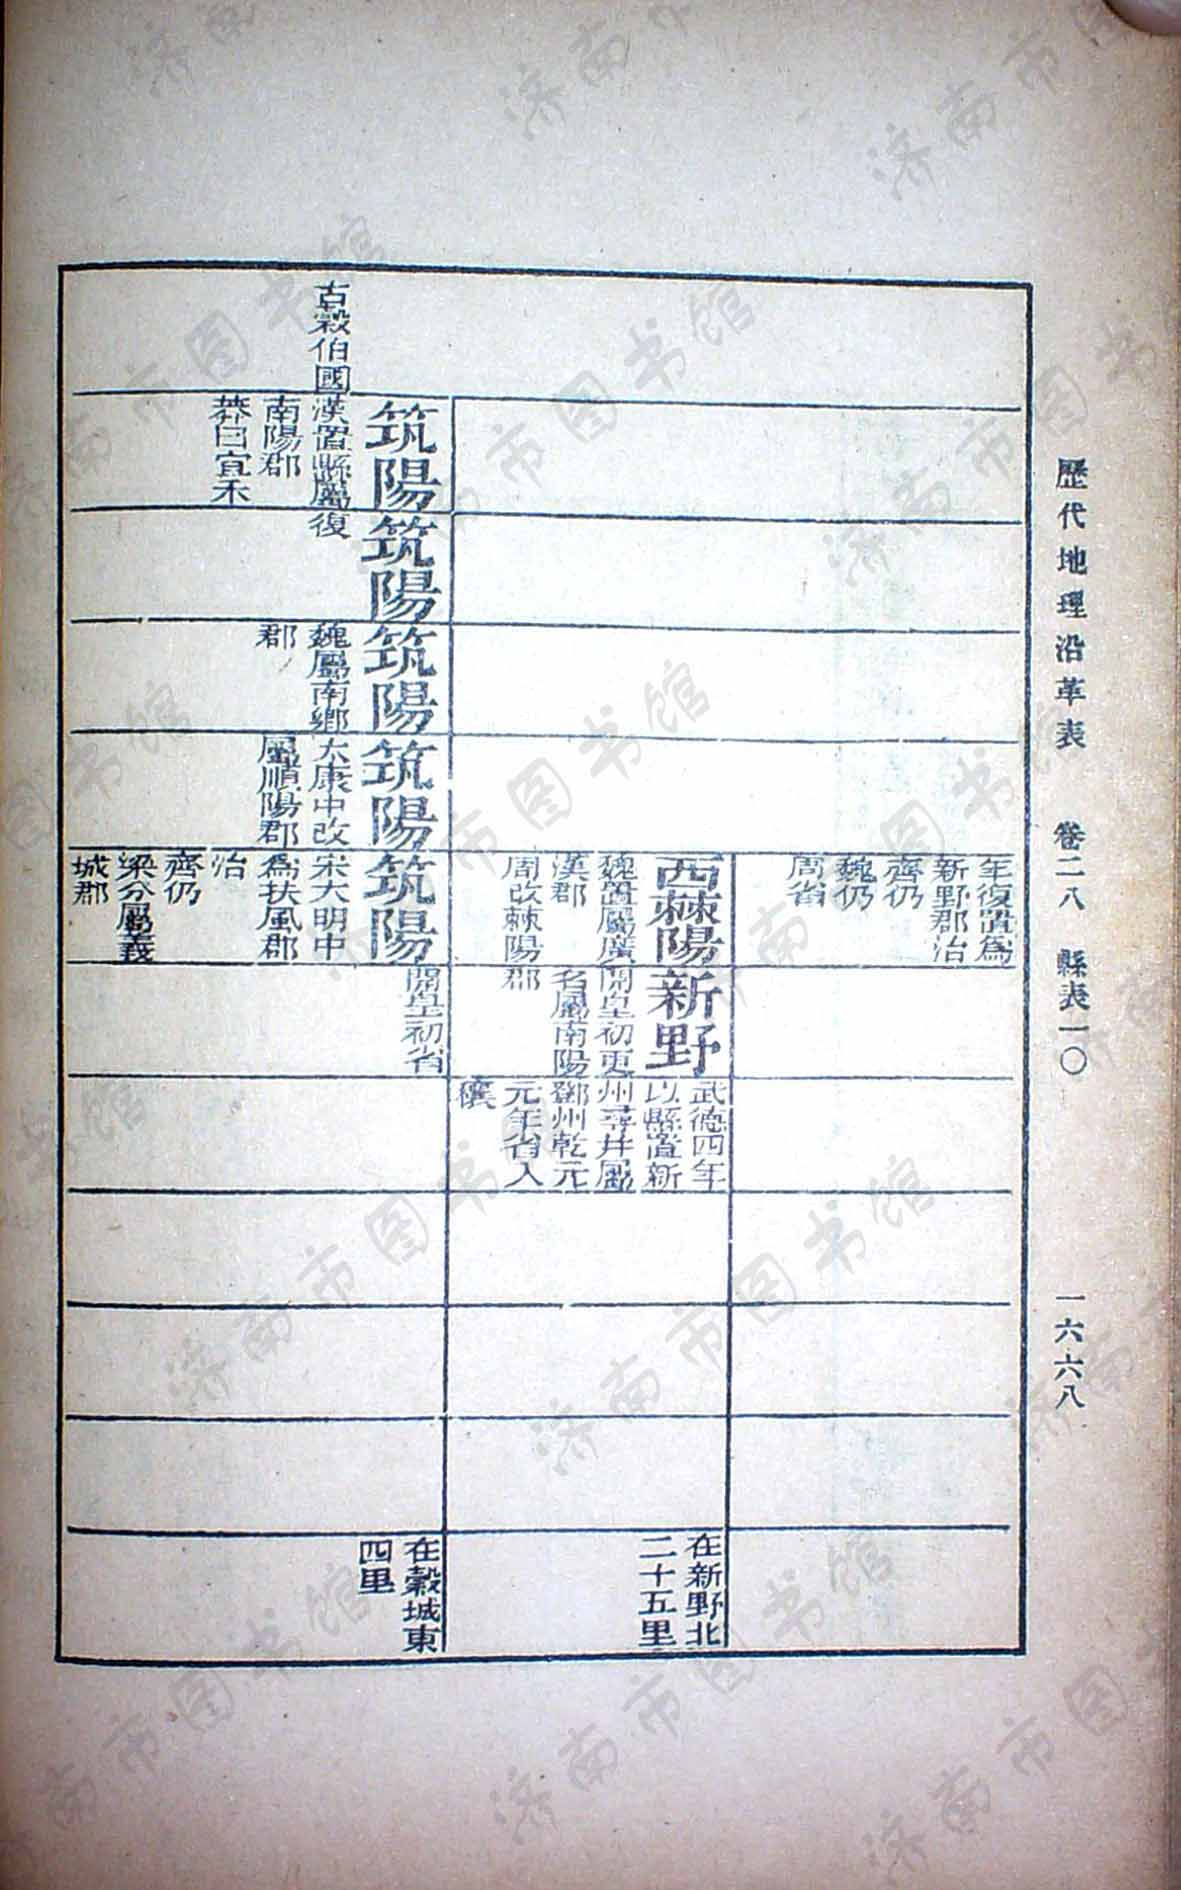 歷代地理沿革表 卷二八 縣表一〇 一六六八
年復置爲
新野郡治
齊仍
魏仍
周省
西棘陽
魏置屬廣
漢郡
周改棘陽
新野
開皇初更
名屬南陽
郡
武德四年
以縣置新
州尋并屬
鄧州乾元
元年省入
穰
在新野北
二十五里
古穀伯國
筑陽
漢置縣屬
南陽郡
莽曰宜禾
筑陽
復
筑陽
魏屬南鄉
郡
筑陽
太康中改
屬順陽郡
筑陽
宋大明中
爲扶風郡
治
齊仍
梁分屬義
城郡
開皇初省
在穀城東
四里
济南市图书馆